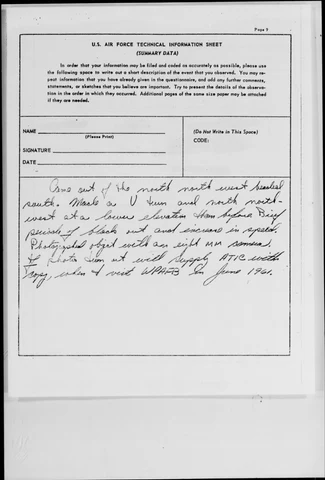 Page 5
U.S. AIR FORCE TECHNICAL INFORMATION SHEET
(SUMMARY DATA)
In order that your information may be filed and coded as accurately as possible, please use
the following space to write out a short description of the event that you observed. You may re-
peat information that you have already given in the questionnaire, and add any further comments,
statements, or sketches that you believe are important. Try to present the details of the observa-
tion in the order in which they occurred. Additional pages of the same size paper may be attached
if they are needed.
NAME
(Please Print)
SIGNATURE
DATE
(Do Not Write in This Space)
CODE:
Came out of the north north west headed
south. Made a U turn and north north-
west at a lower elevation than before Brief
periods of black out and increase in speed.
Photographed object with an eight MM camera.
If photos turn out will supply ATIC with
copy, when I visit WPAFB in June 1961.